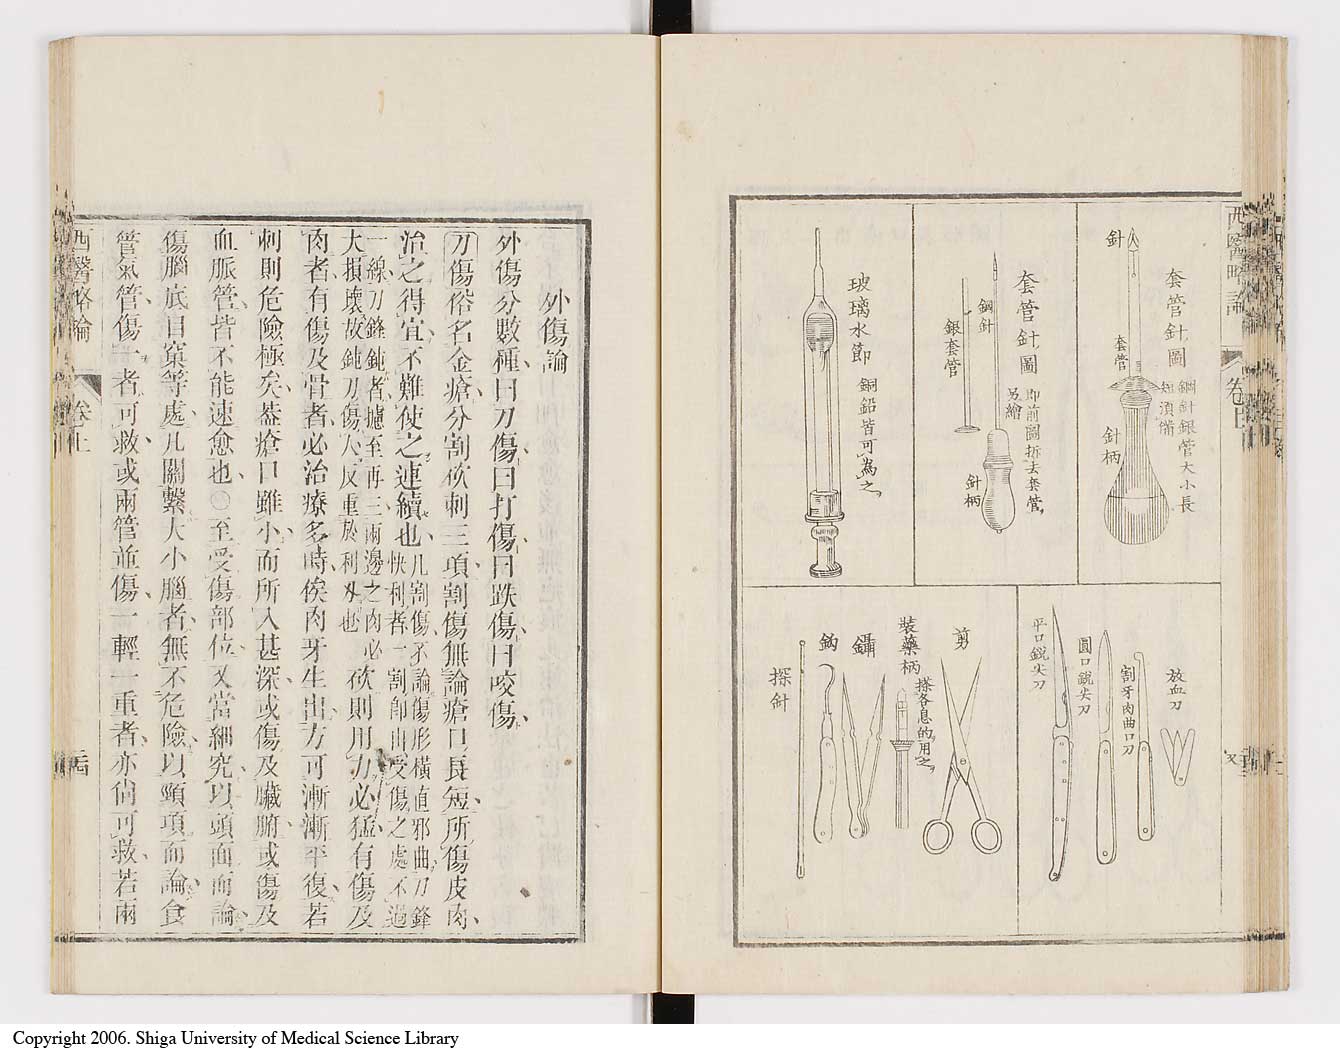 西醫略論
卷上
套管針圖
鋼針銀管大小長
短須備
針
套管
針柄
套管針圖
即前圖拆去套管
另繪
鋼針
銀套管
針柄
玻璃水節
銅鉛皆可為之
放血刀
割牙肉曲口刀
圓口銳尖刀
平口銳尖刀
剪
裝藥柄
搽各息的用之
鑷
鈎
探針
外傷論
外傷分數種曰刀傷曰打傷曰跌傷曰咬傷
刀傷俗名金瘡分割砍刺三項割傷無論瘡口長短所傷皮肉
治之得宜不難使之連續也凡割傷不論傷形橫直邪曲刀鋒
快利者一割卽由受傷之處不過
一線刀鋒鈍者撼至再三兩邊之肉必
大損壞故鈍刀傷人反重於利刀也砍則用力必猛有傷及
肉者有傷及骨者必治療多時俟肉牙生出方可漸漸平復若
刺則危險極矣葢瘡口雖小而所入甚深或傷及臟腑或傷及
血脈管皆不能速愈也〇至受傷部位又當細究以頭面而論
傷腦底目窠等處凡關繫大小腦者無不危險以頸項而論食
管氣管傷一者可救或兩管並傷一輕一重者亦尙可救若兩
西醫略論
卷上